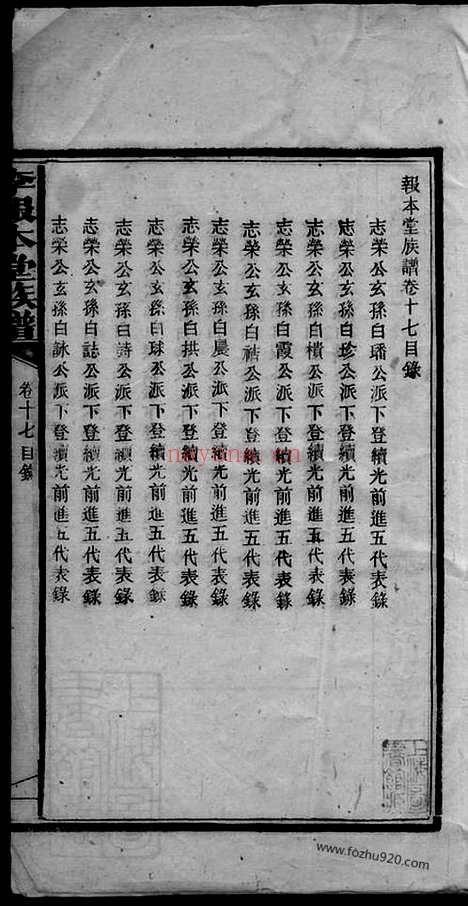 報本堂族譜卷十七目錄
志榮公玄孫白璠公派下登續光前進五代表錄
志榮公玄孫白珍公派下登續光前進五代表錄
志榮公玄孫白樻公派下登續光前進五代表錄
志榮公玄孫白霞公派下登續光前進五代表錄
志榮公玄孫白祰公派下登續光前進五代表錄
志榮公玄孫白晨公派下登續光前進五代表錄
志榮公玄孫白拱公派下登續光前進五代表錄
志榮公玄孫白球公派下登續光前進五代表錄
志榮公玄孫白詩公派下登續光前進五代表錄
志榮公玄孫白誌公派下登續光前進五代表錄
志榮公玄孫白詠公派下登續光前進五代表錄
李報本堂族譜
卷十七目錄
www.fozhu920.com